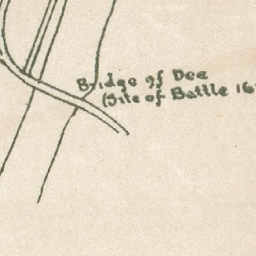 Bridge of Dee
(Site of Battle 16